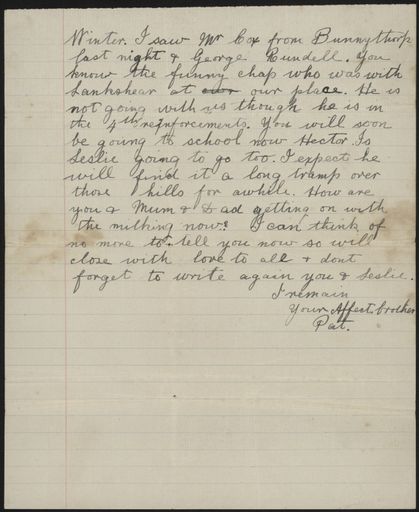 Winter. I saw Mr Cox from Bunnythorp
last night & George Rundell. You
know the funny chap who was with
Lankshear at our our place. He is
not going with us though he is in
the 4th reinforcements. You will soon
be going to school now Hector Is
Leslie going to go too. I expect he
will find it a long tramp over
those hills for awhile. How are
you & Mum & Dad getting on with
the milking now? I can think of
no more to tell you now so will
close with love to all & dont
forget to write again you & Leslie.
I remain
Your Affect. brother
Pat.